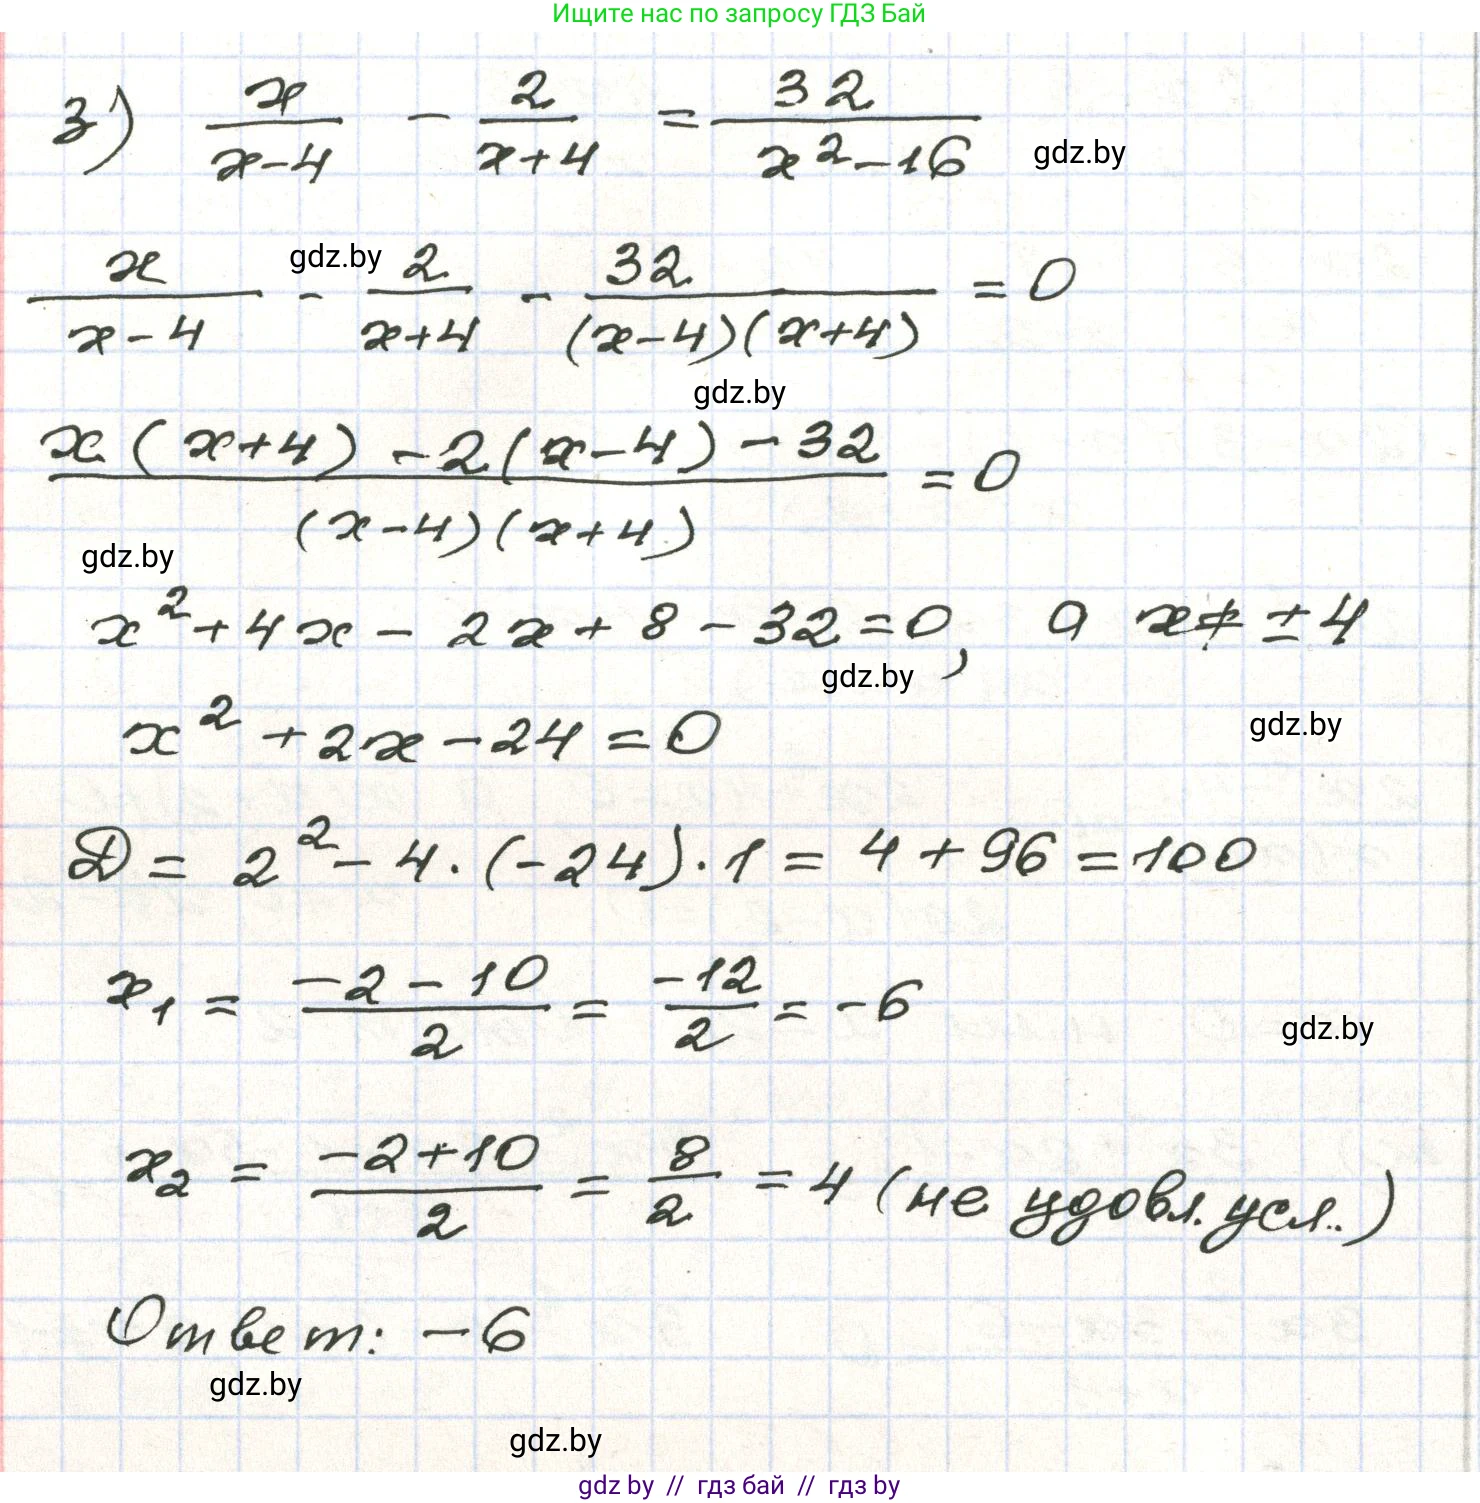 Ищите нас по запросу ГДЗ Бай
3) x/(x-4) - 2/(x+4) = 32/(x²-16)
gdz.by
gdz.by
x/(x-4) - 2/(x+4) - 32/((x-4)(x+4)) = 0
gdz.by
(x(x+4) - 2(x-4) - 32)/((x-4)(x+4)) = 0
gdz.by
x² + 4x - 2x + 8 - 32 = 0, а x ≠ ± 4
gdz.by
gdz.by
x² + 2x - 24 = 0
D = 2² - 4·(-24)·1 = 4 + 96 = 100
x₁ = (-2-10)/2 = -12/2 = -6
gdz.by
x₂ = (-2+10)/2 = 8/2 = 4 (не удовл. усл.)
Ответ: -6
gdz.by
gdz.by
gdz by // гдз бай // gdz by